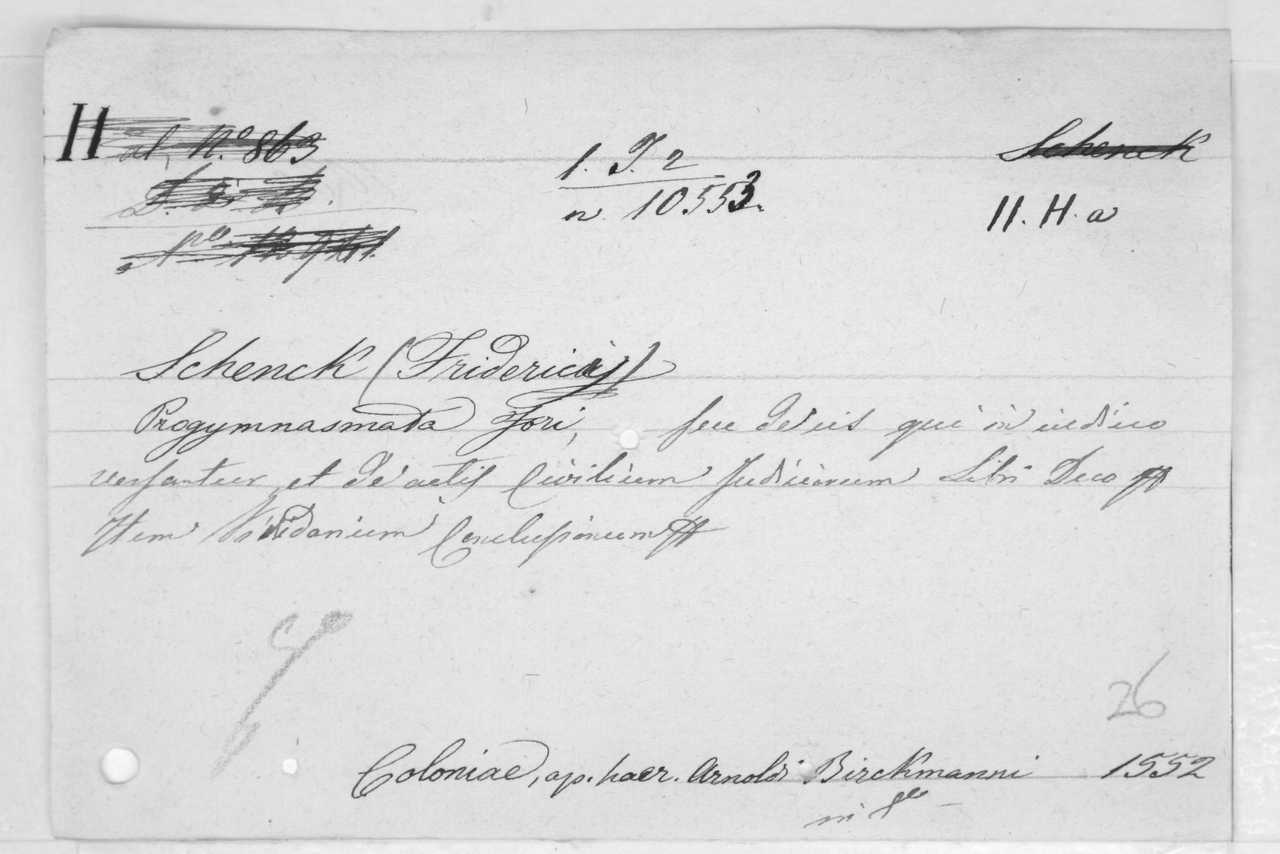 H al. N.º 863
1. J. 2
Schenck
n. 10553.
II. H. a
Schenck (Friderici)
Progymnasmata Fori, seu de iis qui in iudico
versantur et de actis Civilium Judiciorum Libri Deco
Item Viridarium Conclusionum
26
Coloniae, ap. haer. Arnoldi Birckmanni 1552
in fº